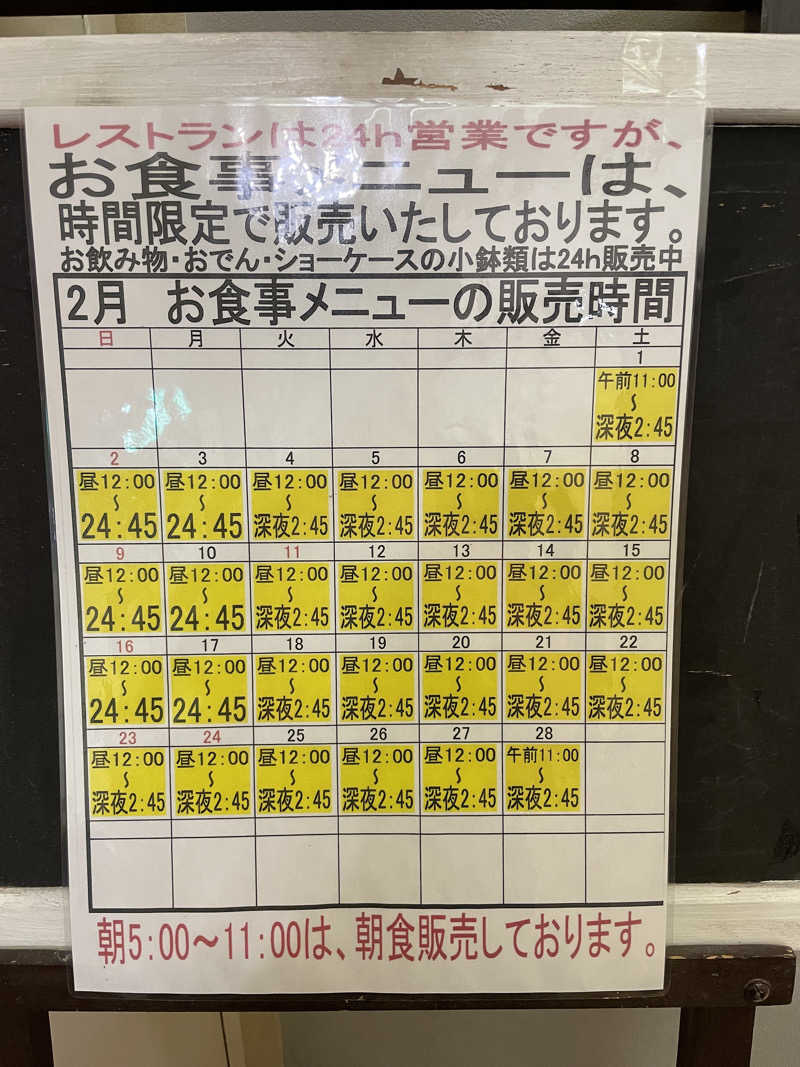 レストランは24h営業ですが、
お食事メニューは、
時間限定で販売いたしております。
お飲み物・おでん・ショーケースの小鉢類は24h販売中
2月 お食事メニューの販売時間
日 月 火 水 木 金 土
1
午前11:00
〜
深夜2:45
2 3 4 5 6 7 8
昼12:00 昼12:00 昼12:00 昼12:00 昼12:00 昼12:00 昼12:00
〜 〜 〜 〜 〜 〜 〜
24:45 24:45 深夜2:45 深夜2:45 深夜2:45 深夜2:45 深夜2:45
9 10 11 12 13 14 15
昼12:00 昼12:00 昼12:00 昼12:00 昼12:00 昼12:00 昼12:00
〜 〜 〜 〜 〜 〜 〜
24:45 24:45 深夜2:45 深夜2:45 深夜2:45 深夜2:45 深夜2:45
16 17 18 19 20 21 22
昼12:00 昼12:00 昼12:00 昼12:00 昼12:00 昼12:00 昼12:00
〜 〜 〜 〜 〜 〜 〜
24:45 24:45 深夜2:45 深夜2:45 深夜2:45 深夜2:45 深夜2:45
23 24 25 26 27 28
昼12:00 昼12:00 昼12:00 昼12:00 昼12:00 午前11:00
〜 〜 〜 〜 〜 〜
深夜2:45 深夜2:45 深夜2:45 深夜2:45 深夜2:45 深夜2:45
朝5:00〜11:00は、朝食販売しております。